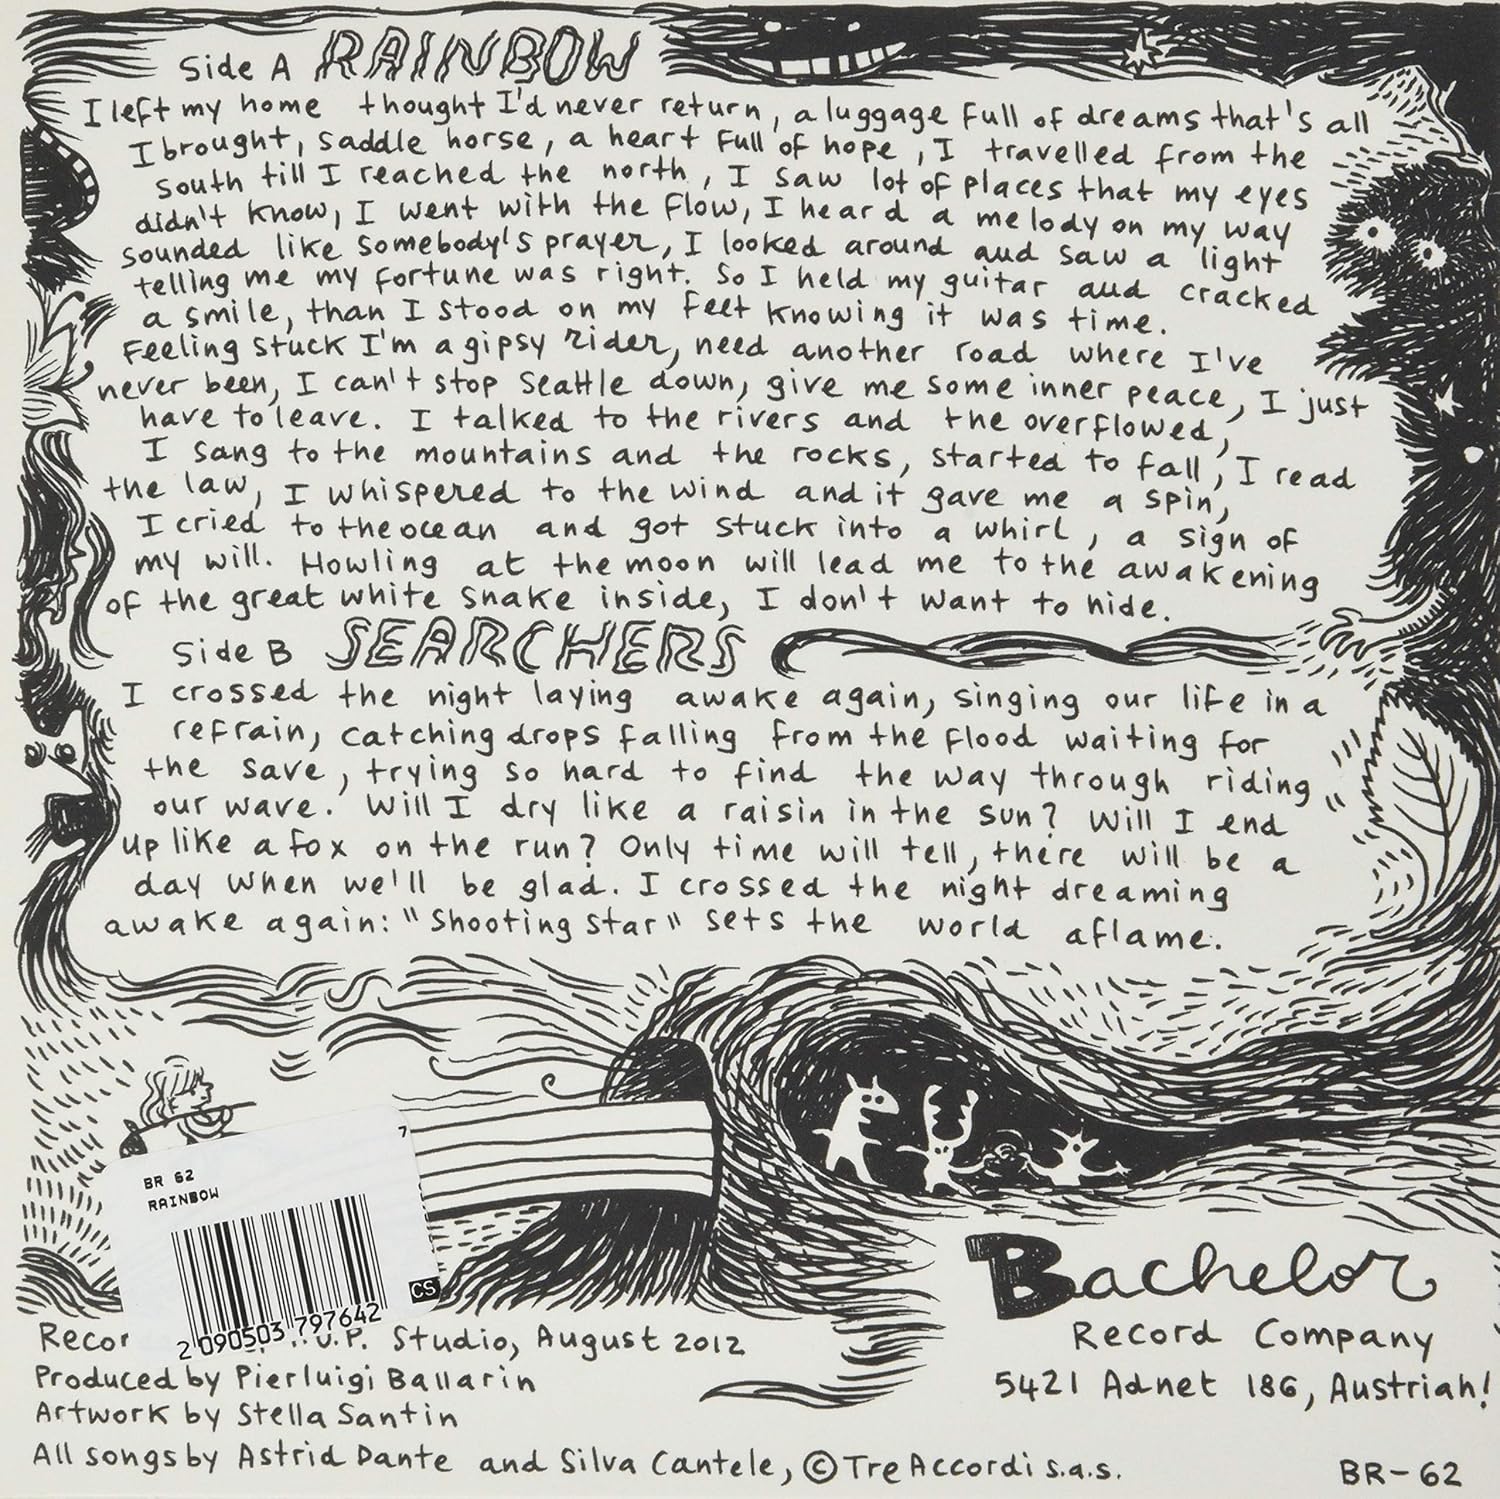 Side A RAINBOW
I left my home thought I'd never return, a luggage full of dreams that's all
I brought, saddle horse, a heart full of hope, I travelled from the
south till I reached the north, I saw lot of places that my eyes
didn't know, I went with the flow, I heard a melody on my way
sounded like somebody's prayer, I looked around and saw a light
telling me my fortune was right. So I held my guitar and cracked
a smile, than I stood on my feet knowing it was time.
Feeling stuck I'm a gipsy rider, need another road where I've
never been, I can't stop Seattle down, give me some inner peace, I just
have to leave. I talked to the rivers and the overflowed,
I sang to the mountains and the rocks, started to fall, I read
the law, I whispered to the wind and it gave me a spin,
I cried to the ocean and got stuck into a whirl, a sign of
my will. Howling at the moon will lead me to the awakening
of the great white snake inside, I don't want to hide.
Side B SEARCHERS
I crossed the night laying awake again, singing our life in a
refrain, catching drops falling from the flood waiting for
the save, trying so hard to find the way through riding
our wave. Will I dry like a raisin in the sun? Will I end
up like a fox on the run? Only time will tell, there will be a
day when we'll be glad. I crossed the night dreaming
awake again: "Shooting Star" sets the world aflame.
7
BR 62
RAINBOW
CS
2 090503 797642
Bachelor
Record Company
5421 Adnet 186, Austriah!
Studio, August 2012
Produced by Pierluigi Ballarin
Artwork by Stella Santin
All songs by Astrid Dante and Silva Cantele, © Tre Accordi s.a.s.
BR-62